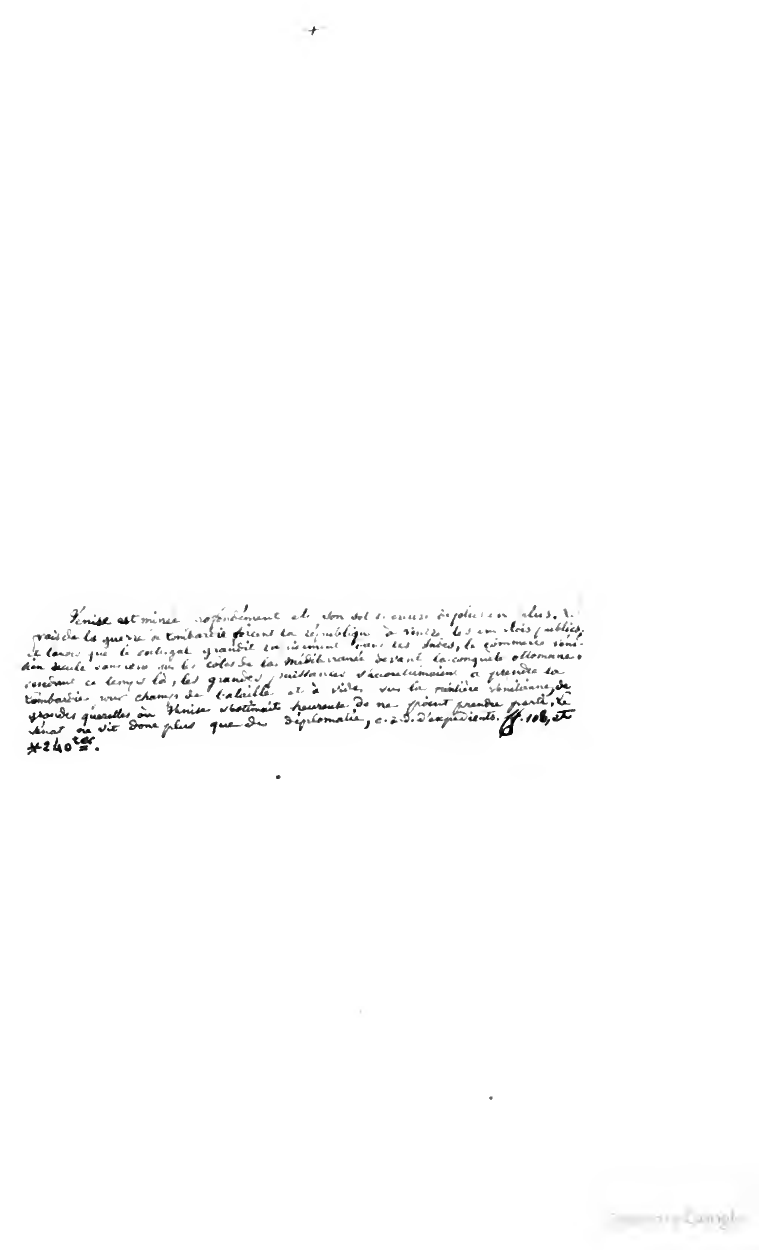 Venise est minée profondément et son sol se creuse de plus en plus.
frais de la guerre de Lombardie forcent la république à vendre les emplois publics,
et tandis que le Portugal grandit dans les Indes, le commerce véni-
tien recule sur les côtes de la Méditerranée devant la conquête ottomane.
Pendant ce temps là, les grandes puissances s'accoutumaient à prendre la
Lombardie pour champs de bataille et à vider, sur la frontière vénitienne, de
grandes querelles où Venise s'estimait heureuse de ne point prendre parti. Le
sénat ne vit donc plus que de diplomatie, c. a. d. d'expédients. ff. 108, et
*240